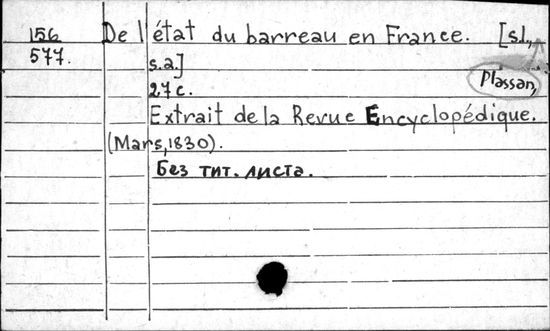 156 De l'état du barreau en France. [s.l.,
577. s.a.] Plassan,
27 c.
Extrait de la Revue Encyclopédique.
(Mars, 1830).
Без тит. листа.